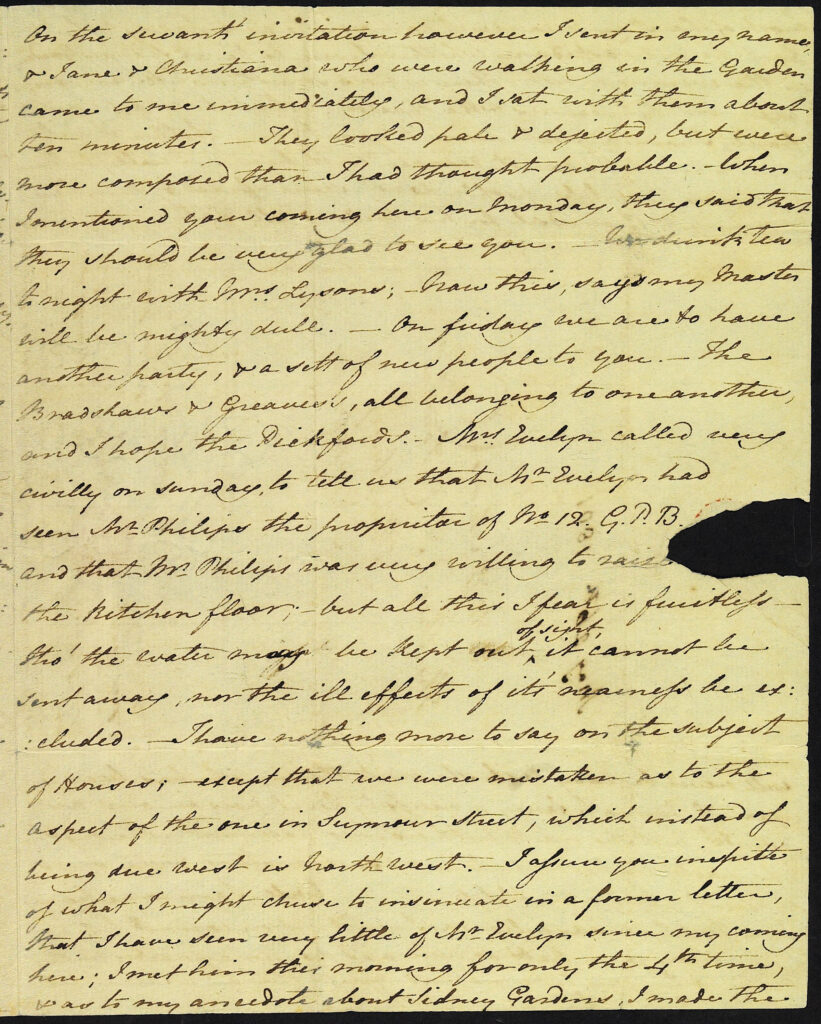 On the servants' invitation however I sent in my name,
& Jane & Christiana who were walking in the Garden
came to me immediately, and I sat with them about
ten minutes. – They looked pale & dejected, but were
more composed than I had thought probable. – When
I mentioned your coming here on Monday, they said that
they should be very glad to see you. – We drink tea
tonight with Mrs Lysons; – Now this, says my Master
will be mighty dull. – On friday we are to have
another party, & a sett of new people to you. – The
Bradshaws & Greaves's, all belonging to one another,
and I hope the Pickfords. – Mrs Evelyn called very
civilly on sunday, to tell us that Mr Evelyn had
seen Mr Philips the proprietor of No 12. G.P.B.
and that Mr Philips was very willing to raise
the kitchen floor; – but all this I fear is fruitless –
tho' the water may be kept out of sight, it cannot be
sent away, nor the ill effects of it's nearness be ex:
:cluded. – I have nothing more to say on the subject
of Houses; – except that we were mistaken as to the
aspect of the one in Seymour Street, which instead of
being due west is North west. – I assure you inspite
of what I might chuse to insinuate in a former letter,
that I have seen very little of Mr Evelyn since my coming
here; I met him this morning for only the 4th time,
& as to my anecdote about Sidney Gardens, I made the